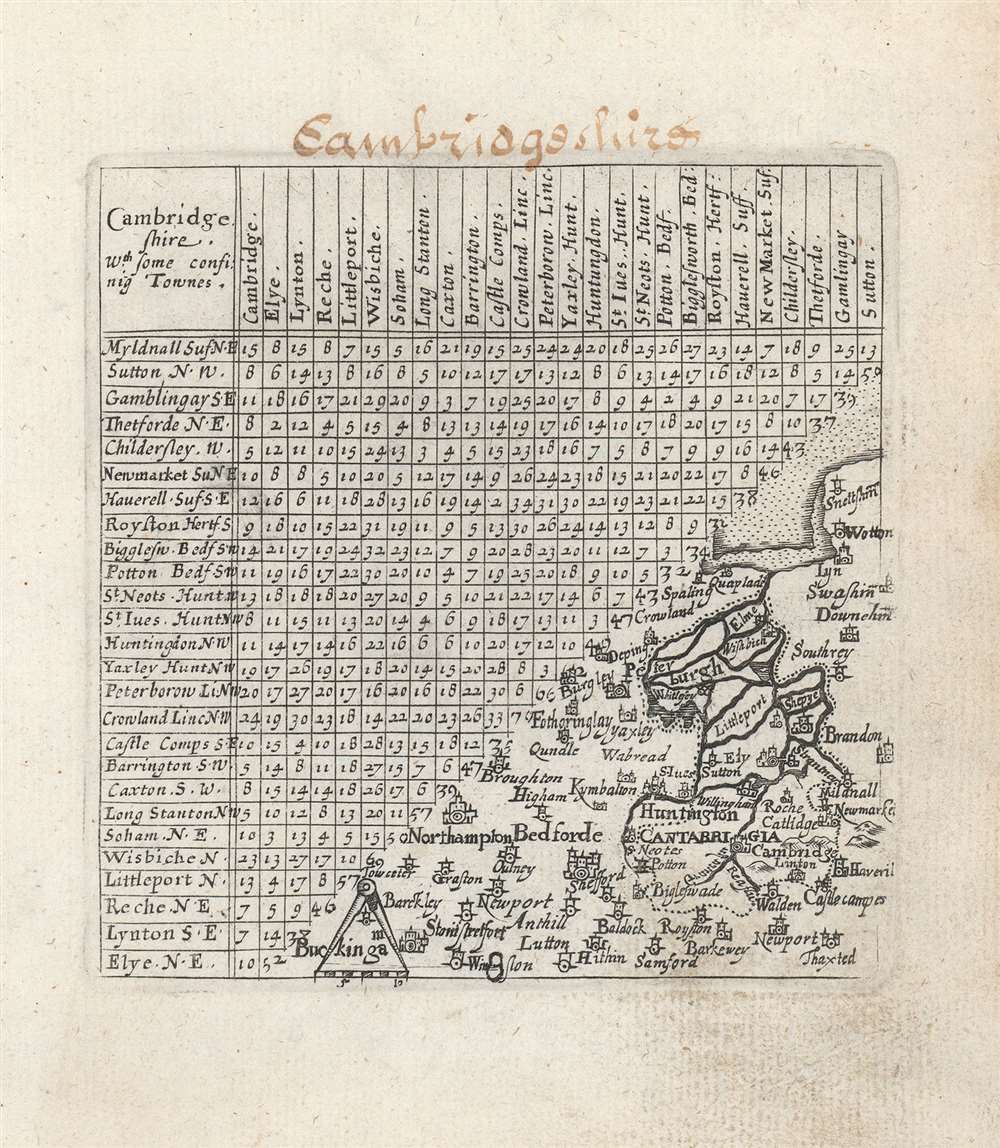 Cambridgeshire
Cambridge
shire.
Wth some confi:
nig Townes.
Cambridge.
Elye.
Lynton.
Reche.
Littleport.
Wisbiche.
Soham.
Long Stanton.
Caxton.
Barrington.
Castle Comps.
Crowland. Linc.
Peterborow. Linc.
Yaxley. Hunt.
Huntungdon.
St. Iues. Hunt.
St. Neots. Hunt
Potton. Bedf.
Bigglesworth. Bed:
Royston. Hertf:
Hauerell. Suff.
New Market. Suf.
Childersley.
Thetforde.
Gamlingay
Sutton.
Myldnall Suf N.E 15 8 15 8 7 15 5 16 21 19 15 25 24 24 20 18 25 26 27 23 14 7 18 9 25 13
Sutton N. W. 8 6 14 13 8 16 8 5 10 12 17 17 13 12 8 6 13 14 17 16 18 12 8 5 14 50
Gamblingay S E 11 18 16 17 21 29 20 9 3 7 19 25 20 17 8 9 4 2 4 9 21 20 7 17 39
Thetforde N. E. 8 2 12 4 5 15 4 8 13 13 14 19 17 16 14 10 17 18 20 17 15 8 10 37
Childersley. W. 5 12 11 10 15 24 13 3 4 5 15 23 18 16 7 5 8 7 9 9 16 14 43
Newmarket Su N E 10 8 8 5 10 20 5 12 17 14 9 26 24 23 18 15 21 20 22 17 8 46
Hauerell. Suf S. E 12 16 6 11 18 28 13 16 19 14 2 34 31 30 22 19 23 21 22 15 38
Royston Hertf S 9 18 10 15 22 31 19 11 9 5 13 30 26 24 14 13 12 8 9 32
Bigglesw. Bedf S w 14 21 17 19 24 32 23 12 7 9 20 28 23 20 11 12 7 3 34
Potton Bedf S w 11 19 16 17 22 30 20 10 4 7 19 25 20 18 9 10 5 32
St Neots. Hunt. w 13 18 18 18 20 27 20 9 5 10 21 22 17 14 6 7 43
St Iues. Hunt N w 8 11 15 11 13 20 14 4 6 9 18 17 13 11 3 47
Huntingdon N W 11 14 17 14 16 22 16 6 6 10 20 17 12 10 49
Yaxley Hunt N w 19 17 26 19 17 18 20 14 15 20 28 8 3 62
Peterborow Li N w 20 17 27 20 17 16 20 16 18 22 30 6 66
Crowland Linc N. W 24 19 30 23 18 14 22 20 23 26 33 76
Castle Comps S. E 10 15 4 10 18 28 13 15 18 12 35
Barrington S. W. 5 14 8 11 18 27 15 7 6 47
Caxton. S. W. 8 15 14 14 18 26 17 6 39
Long Stanton N w 5 10 12 8 13 20 11 57
Soham. N. E. 10 3 13 4 5 15 50
Wisbiche N. 23 13 27 17 10 69
Littleport N. 13 4 17 8 57
Reche. N E. 7 5 9 46
Lynton S. E 7 14 38
Elye. N. E. 10 52
Snetshm
Wotton
Lyn
Swashm
Downehm
Quaplade
Spaling
Crowland
Deping
Elme
Wisbich
Southrey
Peterburgh
Burgley
Whitlsey
Littleport
Shepye
Brandon
Fotheringlay
Yaxley
Qundle
Wabread
Ely
Broughton
Higham
Kymbalton
St Iues
Sutton
Mildnall
Newmarke.
Huntington
Willingham
Roche
Catlidge
Northampton
Bedforde
CANTABRIGIA
Cambridg
St Neotes
Potton
Linton
Haveril
Towceter
Grafton
Oulney
Shefford
Bigleswade
Walden
Castle campes
Barckley
Newport
Stonistretfort
Anthill
Baldock
Royston
Newport
Buckingam
Lutton
Hithin
Barkewey
Samford
Thaxted
Winslon
5 10
8